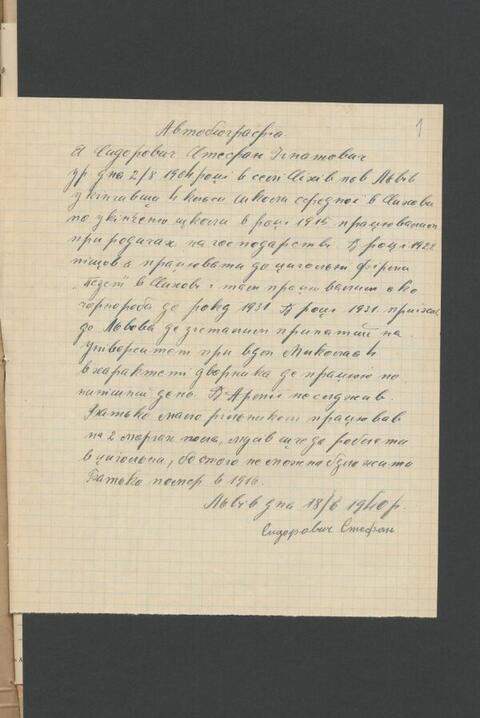 1
Автобіографія
Я Сидорович Стефан Ігнатович
ур. дня 2/8 1904 році в селі Сихів пов Львів
укінчивши 4 класи школи середної в Сихові
по укінченю школи в році 1915 працювалисм
при родичах на господарстві. В році 1922
пішов я працювати до цигольні фірми
в Сихові і там працювалисм яко
чорнороба до року 1931. В році 1931 приїхав
до Львова де зісталисм принятий на
Університет при вул Миколая
в характері дворника де працюю по
нинішний день. В Армії не служив.
Батько мого рільником працював
на 2 моргах поля, мусів ще до роботи
в цигольни, бо с того не можна було жити
Батько помер в 1916.
Львів дня 18/6 1940 р.
Сидорович Стефан